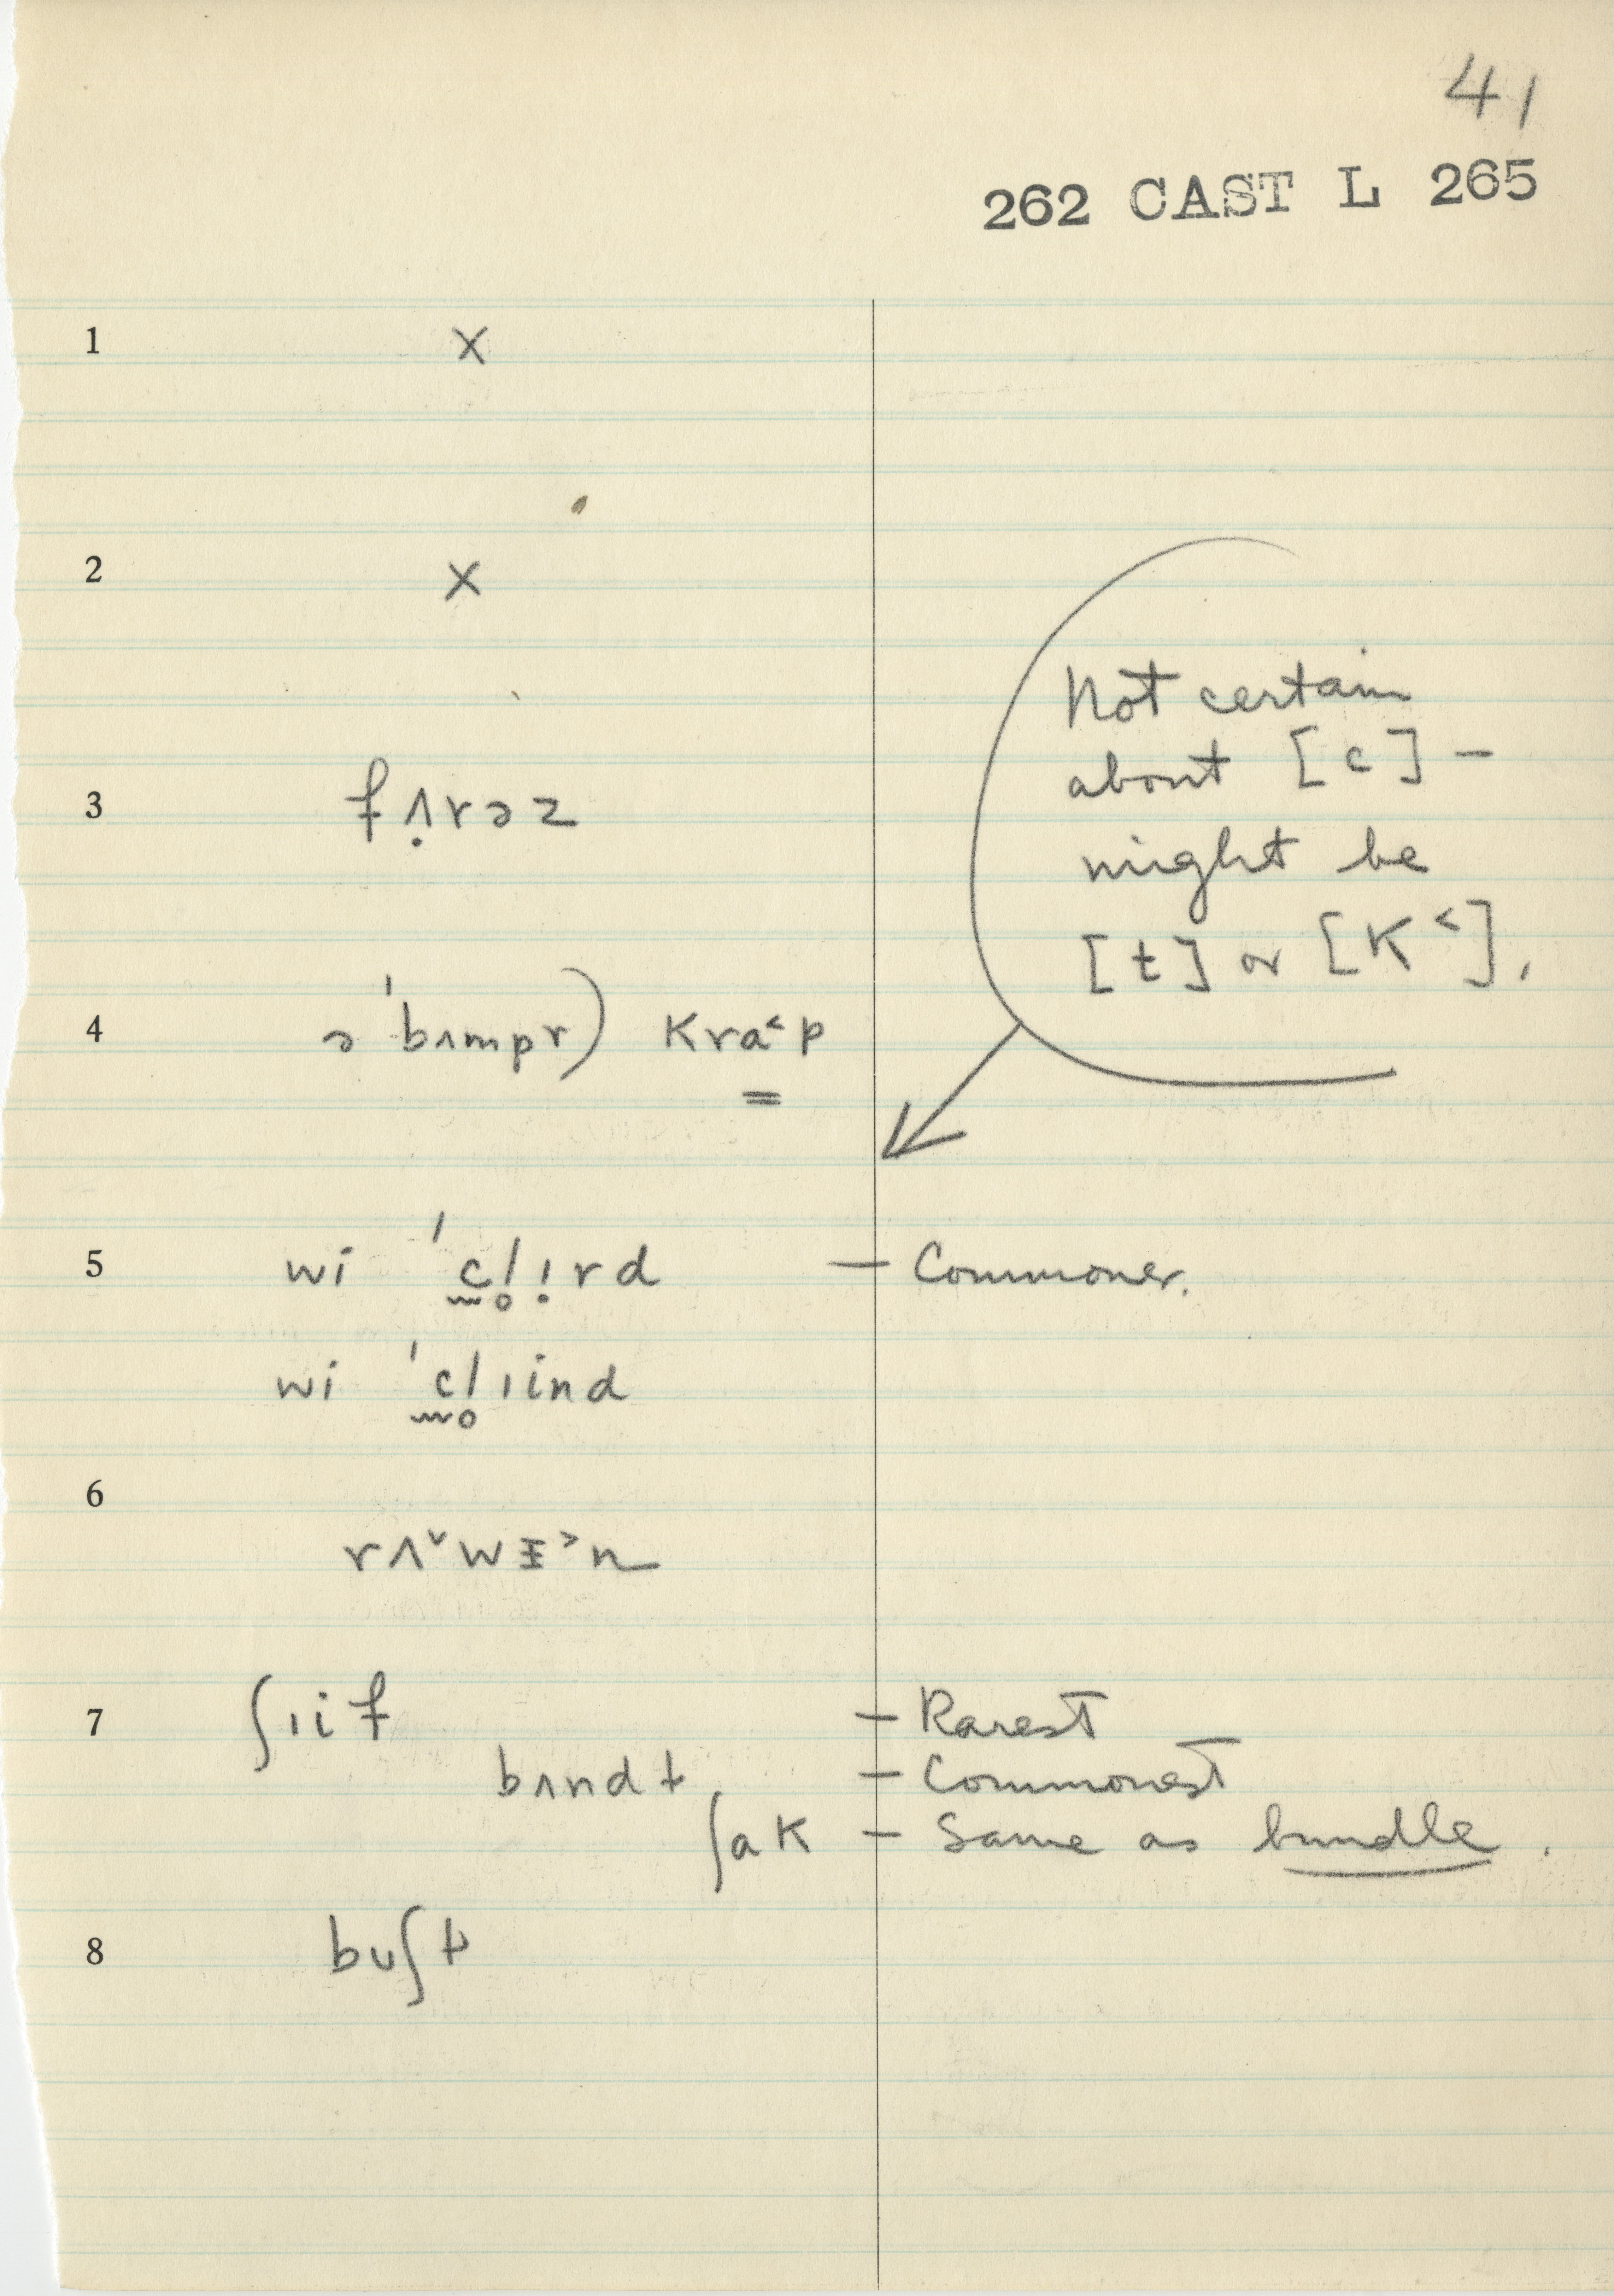 41
262 CAST L 265
1 X
2 X
3 fʌ̣rəz
4 ə ˈbʌmpr) kra˂p
Not certain
about [c] –
might be
[t] or [K˂].
5 wi ˈc̰l̥ı̣rd – Commoner.
wi ˈc̰l̥ıind
6 rʌ˅wɪ˃n
7 ʃıif – Rarest
bʌndɫ – Commonest
ʃaK – Same as bundle.
8 bʊʃɫ